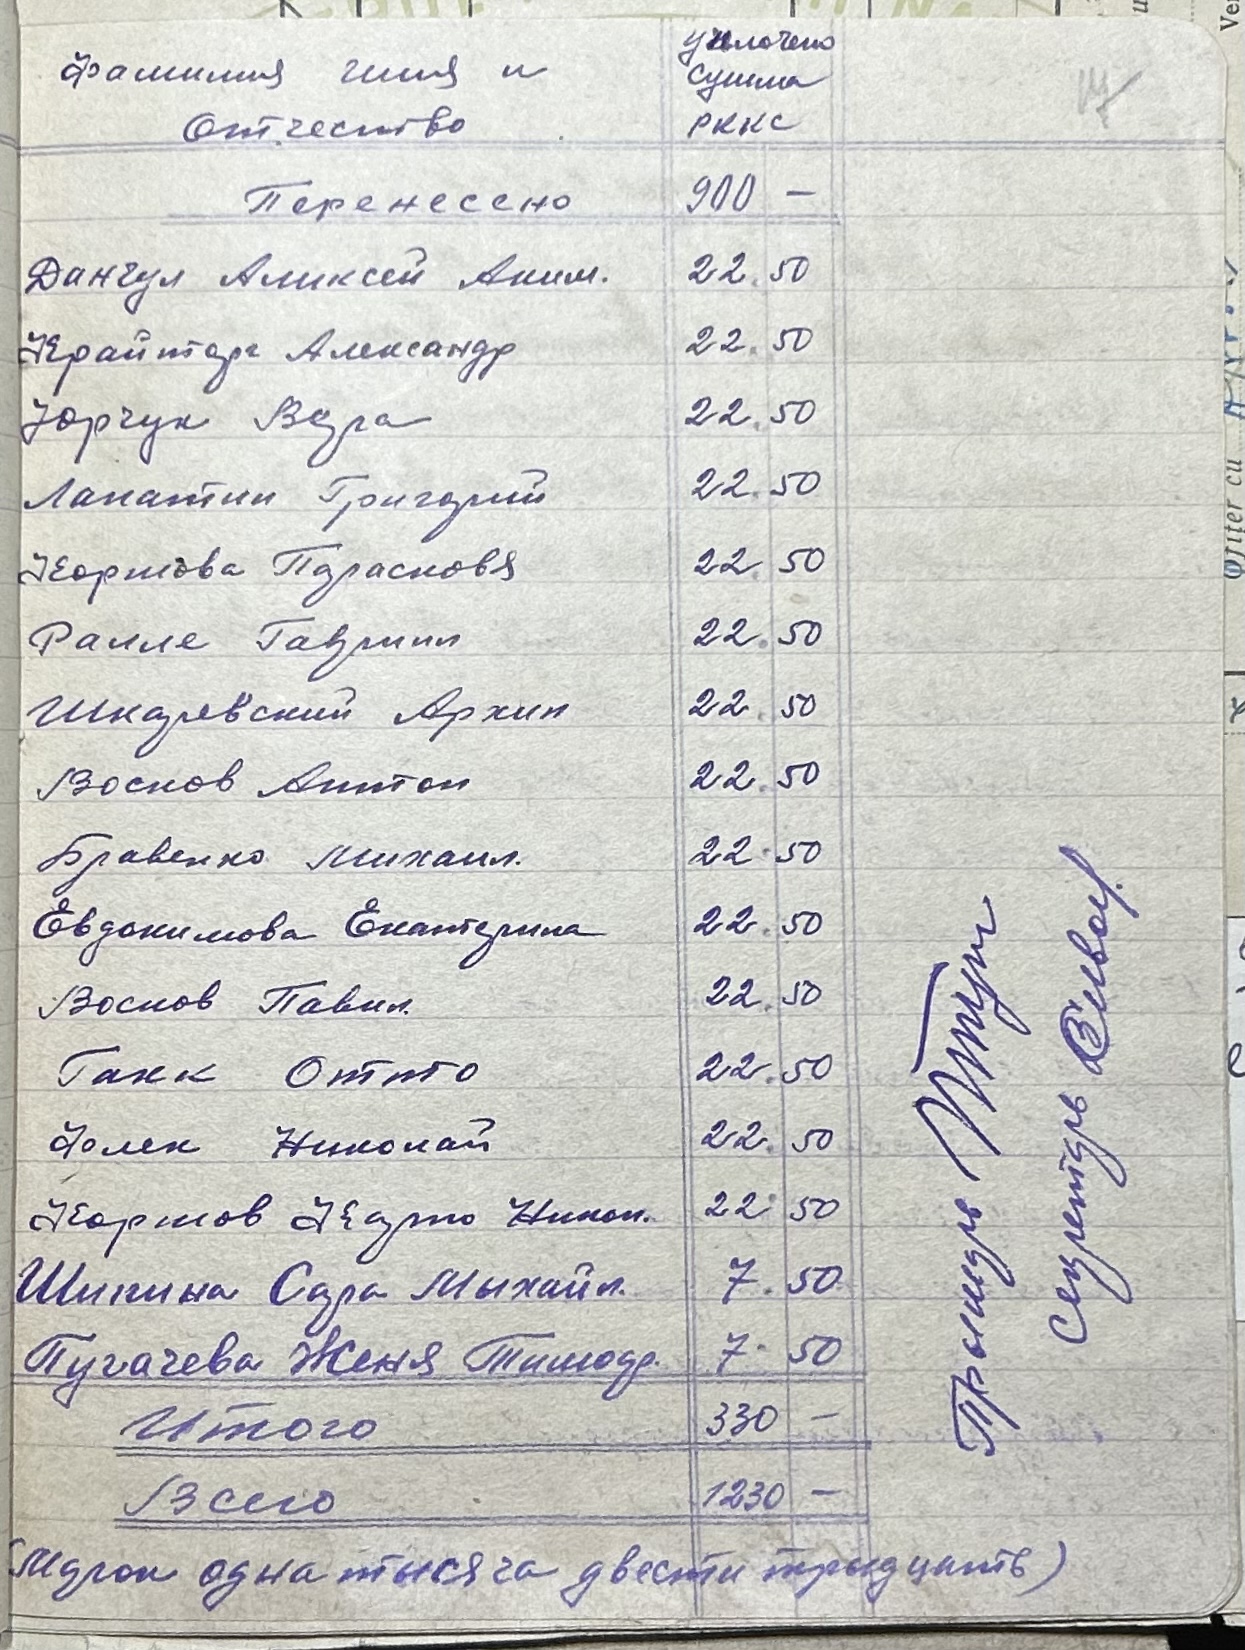 Фамилия имя и
Отчество
уплочено
сумма
РККС
Перенесено 900 —
Данчул Алексей Аким. 22.50
Крайтер Александр 22.50
Юрчук Вера 22.50
Лакатин Григорий 22.50
Кортова Парасковя 22.50
Ралле Гавриил 22.50
Шкаревский Архип 22.50
Восков Антон 22.50
Бравенко Михаил. 22.50
Евдокимова Екатерина 22.50
Восков Павел. 22.50
Ганк Отто 22.50
Фолек Николай 22.50
Кортов Карпо Никол. 22.50
Шипина Сара Мыхайл. 7.50
Пугачева Женя Тимофе. 7.50
Итого 330 —
Всего 1230 —
(Марок одна тысяча двести тридцать)
Секретарь